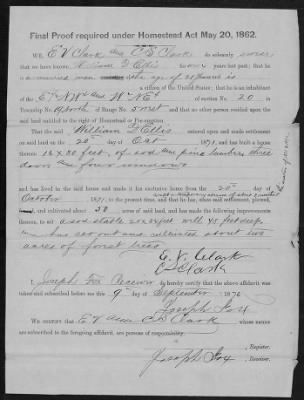 Final Proof required under Homestead Act May 20, 1862.
WE, E V Clark and C S Clark do solemnly swear
that we have known William D Ellis for years last past; that he
is a married man the age of
a citizen of the United States; that he is an inhabitant
of the E½ NW¼ and W½ NE¼ of section No. 20 in
Township No. North of Range No. and that no other person resided upon the
said land entitled to the right of Homestead or Pre-emption.
That the said William D Ellis entered upon and made settlement
on said land on the 20th day of Oct, 1871, and has built a house
thereon feet, of sod and pine lumber three
doors and four windows
and has lived in the said house and made it his exclusive home from the 20th day of
October, 1871, to the present time, and that he has, since said settlement, plowed,
and cultivated about 50 acres of said land, and has made the following improvements
thereon, to wit: a sod stable well 45 feet deep
has set out and cultivated about two
acres of forest trees
E. V. Clark
C S Clark
I, Joseph Fox Receiver do hereby certify that the above affidavit was
taken and subscribed before me this 9th day of September 1876
Joseph Fox
WE CERTIFY that E V and C S Clark whose names
are subscribed to the foregoing affidavit, are persons of respectability.
, Register.
Joseph Fox, Receiver.